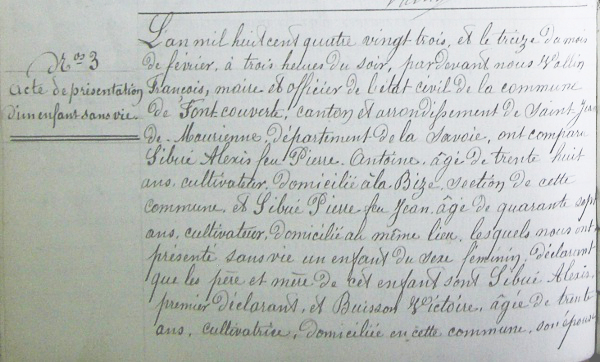 Nos 3
acte de présentation
d'un enfant sans vie
L'an mil huit cent quatre vingt trois, et le treize du mois
de février, à trois heures du soir, pardevant nous Vallin
François, maire et officier de l'état civil de la commune
de Fontcouverte, canton et arrondissement de Saint Jean
de Maurienne, département de la Savoie, ont comparu
Sibué Alexis feu Pierre-Antoine, âgé de trente huit
ans, cultivateur, domicilié à la Bize, section de cette
commune, et Sibué Pierre feu Jean, âgé de quarante sept
ans, cultivateur, domicilié au même lieu, lesquels nous ont
présenté sans vie un enfant du sexe féminin, déclarant
que les père et mère de cet enfant sont Sibué Alexis,
premier déclarant, et Buisson Victoire, âgée de trente
ans, cultivatrice, domiciliée en cette commune, son épouse